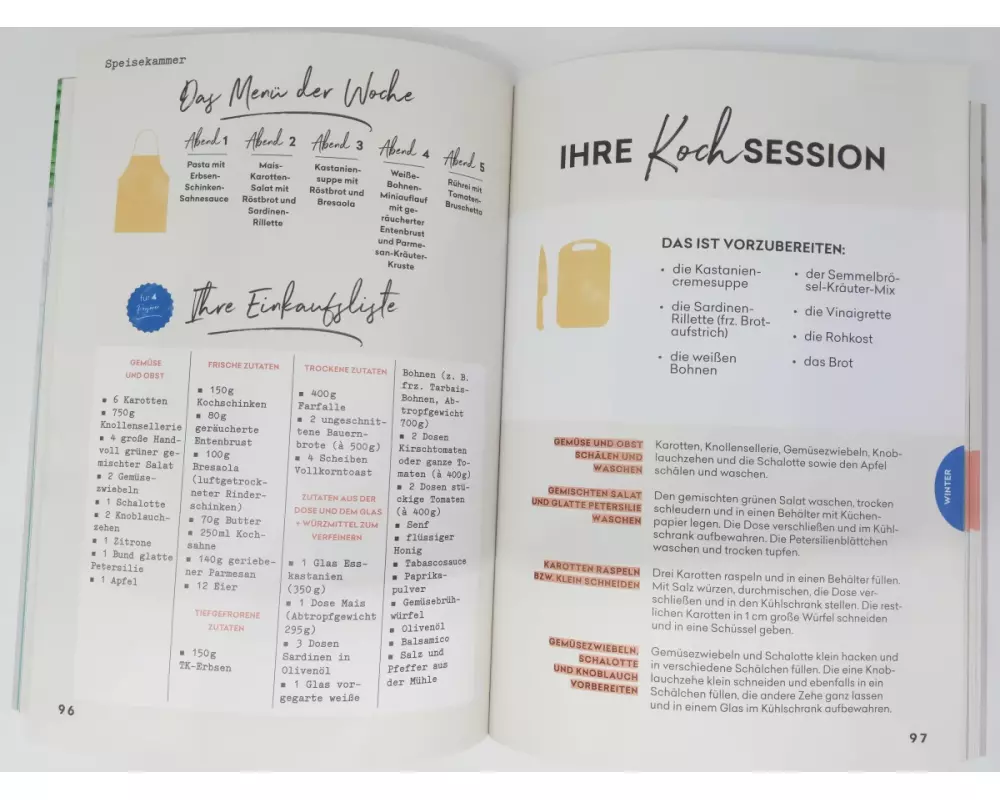 Speisekammer
Das Menü der Woche
Abend 1
Pasta mit
Erbsen-
Schinken-
Sahnesauce
Abend 2
Mais-
Karotten-
Salat mit
Röstbrot und
Sardinen-
Rillette
Abend 3
Kastanien-
suppe mit
Röstbrot und
Bresaola
Abend 4
Weiße-
Bohnen-
Miniauflauf
mit ge-
räucherter
Entenbrust
und Parme-
san-Kräuter-
Kruste
Abend 5
Rührei mit
Tomaten-
Bruschetta
für 4
Ihre Einkaufsliste
GEMÜSE
UND OBST
▪ 6 Karotten
▪ 750g
Knollensellerie
▪ 4 große Hand-
voll grüner ge-
mischter Salat
▪ 2 Gemüse-
zwiebeln
▪ 1 Schalotte
▪ 2 Knoblauch-
zehen
▪ 1 Zitrone
▪ 1 Bund glatte
Petersilie
▪ 1 Apfel
FRISCHE ZUTATEN
▪ 150g
Kochschinken
▪ 80g
geräucherte
Entenbrust
▪ 100g
Bresaola
(luftgetrock-
neter Rinder-
schinken)
▪ 70g Butter
▪ 250ml Koch-
sahne
▪ 140g geriebe-
ner Parmesan
▪ 12 Eier
TIEFGEFRORENE
ZUTATEN
▪ 150g
TK-Erbsen
TROCKENE ZUTATEN
▪ 400g
Farfalle
▪ 2 ungeschnit-
tene Bauern-
brote (à 500g)
▪ 4 Scheiben
Vollkorntoast
ZUTATEN AUS DER
DOSE UND DEM GLAS
+ WÜRZMITTEL ZUM
VERFEINERN
▪ 1 Glas Ess-
kastanien
(350g)
▪ 1 Dose Mais
(Abtropfgewicht
295g)
▪ 3 Dosen
Sardinen in
Olivenöl
▪ 1 Glas vor-
gegarte weiße
Bohnen (z. B.
frz. Tarbais-
Bohnen, Ab-
tropfgewicht
700g)
▪ 2 Dosen
Kirschtomaten
oder ganze To-
maten (à 400g)
▪ 2 Dosen stü-
ckige Tomaten
(à 400g)
▪ Senf
▪ flüssiger
Honig
▪ Tabascosauce
▪ Paprika-
pulver
▪ Gemüsebrüh-
würfel
▪ Olivenöl
▪ Balsamico
▪ Salz und
Pfeffer aus
der Mühle
96
IHRE Koch SESSION
DAS IST VORZUBEREITEN:
• die Kastanien-
cremesuppe
• die Sardinen-
Rillette (frz. Brot-
aufstrich)
• die weißen
Bohnen
• der Semmelbrö-
sel-Kräuter-Mix
• die Vinaigrette
• die Rohkost
• das Brot
GEMÜSE UND OBST
SCHÄLEN UND
WASCHEN
Karotten, Knollensellerie, Gemüsezwiebeln, Knob-
lauchzehen und die Schalotte sowie den Apfel
schälen und waschen.
GEMISCHTEN SALAT
UND GLATTE PETERSILIE
WASCHEN
Den gemischten grünen Salat waschen, trocken
schleudern und in einen Behälter mit Küchen-
papier legen. Die Dose verschließen und im Kühl-
schrank aufbewahren. Die Petersilienblättchen
waschen und trocken tupfen.
KAROTTEN RASPELN
BZW. KLEIN SCHNEIDEN
Drei Karotten raspeln und in einen Behälter füllen.
Mit Salz würzen, durchmischen, die Dose ver-
schließen und in den Kühlschrank stellen. Die rest-
lichen Karotten in 1 cm große Würfel schneiden
und in eine Schüssel geben.
GEMÜSEZWIEBELN,
SCHALOTTE
UND KNOBLAUCH
VORBEREITEN
Gemüsezwiebeln und Schalotte klein hacken und
in verschiedene Schälchen füllen. Die eine Knob-
lauchzehe klein schneiden und ebenfalls in ein
Schälchen füllen, die andere Zehe ganz lassen
und in einem Glas im Kühlschrank aufbewahren.
WINTER
97